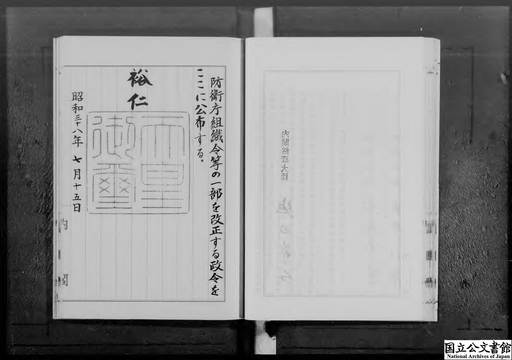 防衛庁組織令等の一部を改正する政令を
ここに公布する。
裕仁
天皇
御璽
昭和三十八年七月十五日
内閣総理大臣
国立公文書館
National Archives of Japan